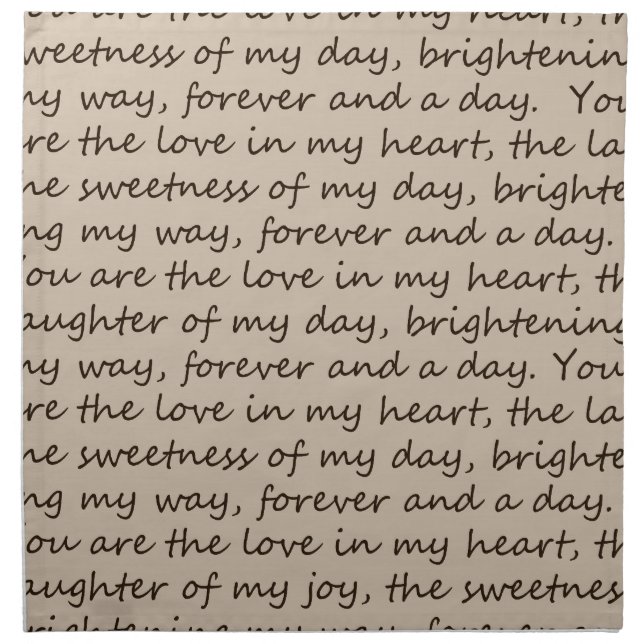 ou are the love in my heart, th
weetness of my day, brightenin
ny way, forever and a day. You
re the love in my heart, the la
he sweetness of my day, brighte
ng my way, forever and a day.
You are the love in my heart, th
aughter of my day, brightening
ny way, forever and a day. You
re the love in my heart, the la
he sweetness of my day, brighte
ng my way, forever and a day.
ou are the love in my heart, th
aughter of my joy, the sweetnes
rightening my way, forever